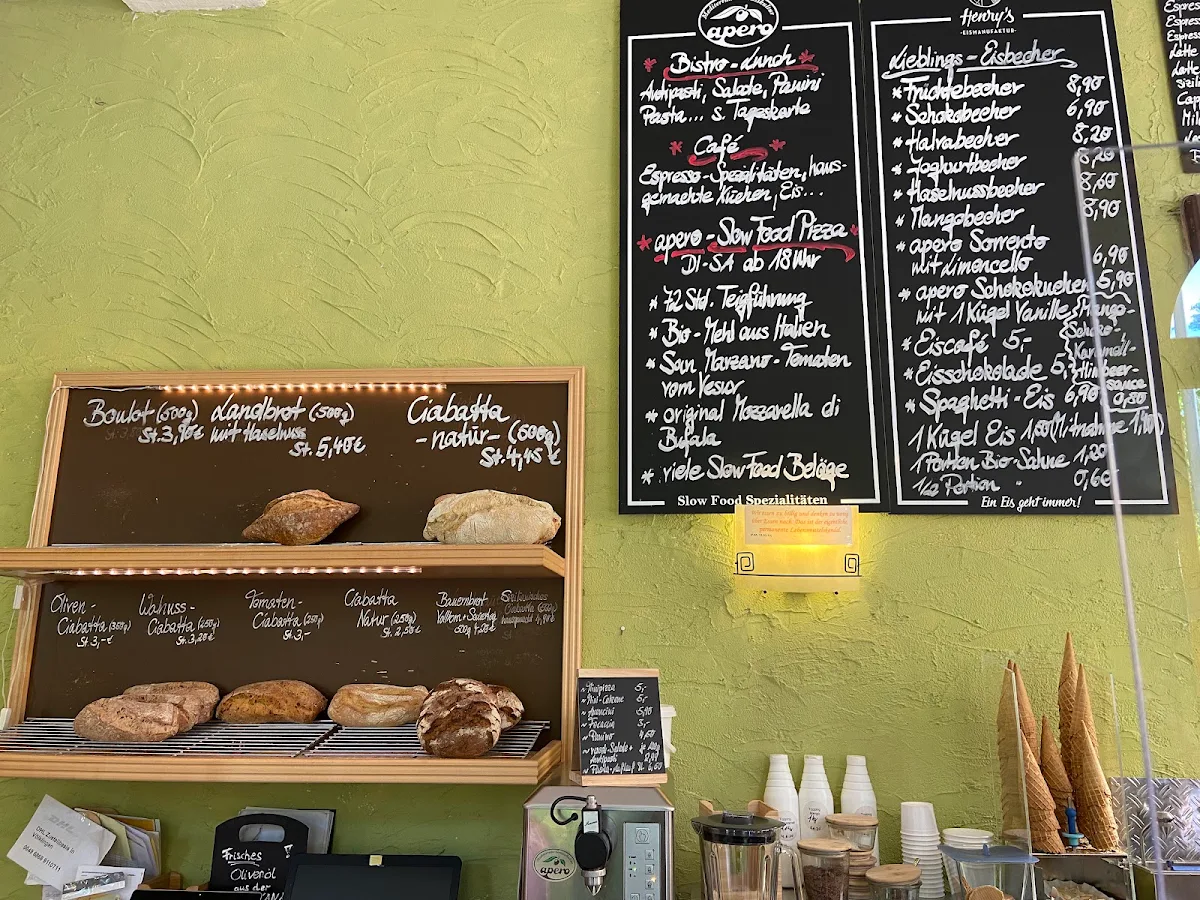 apero
* Bistro-Lunch *
Antipasti, Salate, Panini
Pasta... s. Tageskarte
* Café *
Espresso-Spezialitäten, haus-
gemachte Kuchen, Eis...
* apero - Slow Food Pizza *
DI-SA ab 18 Uhr
* 72 Std. Teigführung
* Bio-Mehl aus Italien
* San Marzano-Tomaten
vom Vesuv
* original Mozzarella di
Bufala
* viele Slow Food Beläge
Slow Food Spezialitäten
Henry's
-EISMANUFAKTUR-
Lieblings-Eisbecher
* Früchtebecher 8,90
* Schokobecher 6,90
* Halvabecher 8,20
* Joghurtbecher 8,20
* Haselnussbecher 8,60
* Mangobecher 8,90
* apero Sorrento
mit Limoncello 6,90
* apero Schokokuchen 5,90
mit 1 Kugel Vanille
* Eiscafé 5,-
* Eisschokolade 5,-
* Spaghetti-Eis 6,90
Mango-
Schoko-
Karamell-
Himbeer-
sauce
0,50
1 Kugel Eis 1,80 (Mitnahme 1,60)
1 Portion Bio-Sahne 1,20
1/2 Portion " 0,60
Ein Eis geht immer!
Espress
Espress
Espress
Latte
Latte
Cap
Boulot (500g)
St. 3,90€
Landbrot (500g)
mit Haselnuss
St. 5,40€
Ciabatta
-natur- (500g)
St. 4,45€
Oliven-
Ciabatta (350g)
St. 3,-€
Walnuss-
Ciabatta (250g)
St. 3,20€
Tomaten-
Ciabatta (250g)
St. 3,-
Ciabatta
Natur (250g)
St. 2,50€
Bauernbrot
Vollkorn + Sauerteig
500g 4,20€
Sizilianisches
Ciabatta (500g)
~ Minipizza 5,-
~ Mini-Calzone 5,-
~ Arancini 5,90
~ Focaccia 5,-
~ Panino 4,50
Antipasti
DHL Zustellbasis in
Völklingen
Frisches
Olivenöl
aus der
apero